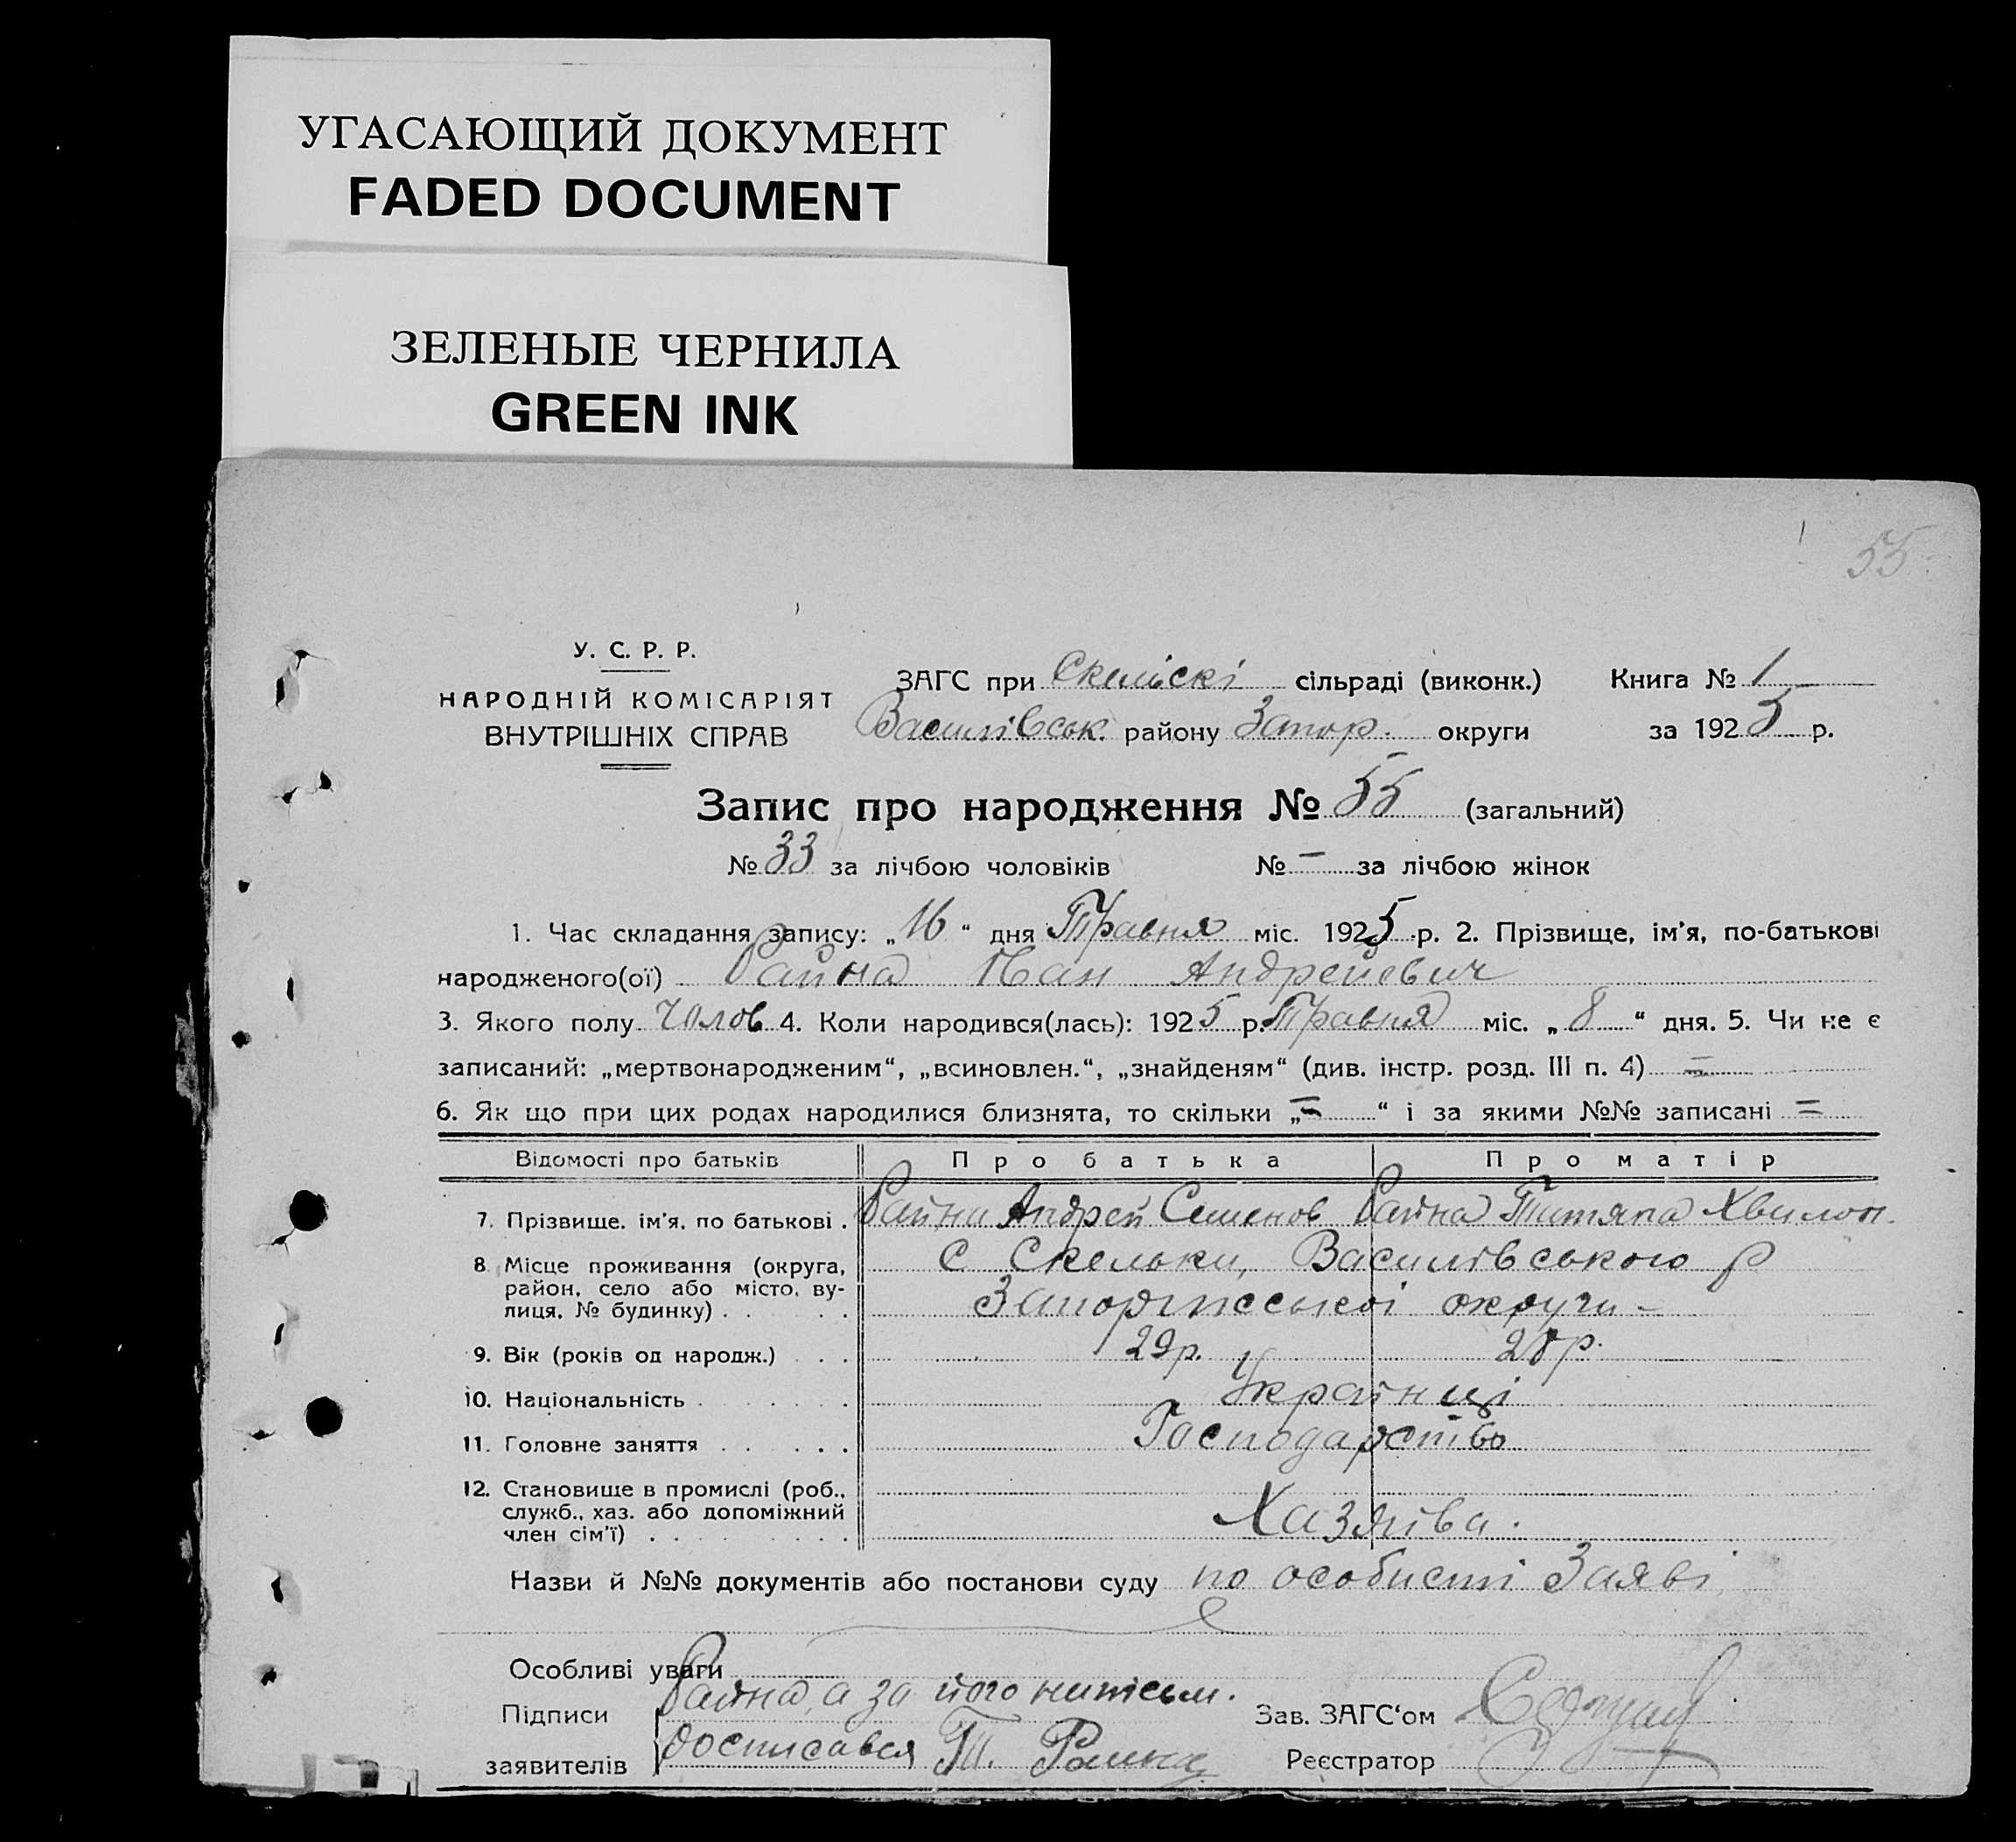 УГАСАЮЩИЙ ДОКУМЕНТ
FADED DOCUMENT
ЗЕЛЕНЫЕ ЧЕРНИЛА
GREEN INK
55
У. С. Р. Р.
НАРОДНІЙ КОМІСАРІЯТ
ВНУТРІШНІХ СПРАВ
ЗАГС при Скельскі сільраді (виконк.) Книга № 1
Василівськ. району Запор. округи за 1925 р.
Запис про народження № 55 (загальний)
№ 33 за лічбою чоловіків № — за лічбою жінок
1. Час складання запису: „16“ дня Травня міс. 1925 р. 2. Прізвище, ім'я, по-батькові
народженого(ої) Райна Иван Андреевич
3. Якого полу Чолов 4. Коли народився(лась): 1925 р. Травня міс. „8“ дня. 5. Чи не є
записаний: „мертвонародженим“, „всиновлен.“, „знайденям“ (див. інстр. розд. III п. 4) =
6. Як що при цих родах народилися близнята, то скільки „=“ і за якими №№ записані =
Відомості про батьків Про батька Про матір
7. Прізвище, ім'я, по батькові . Райна Андрей Семенов Райна Титяна Хвилон.
8 Місце проживання (округа, район, село або місто, вулиця, № будинку) . . . . С Скельки, Василівського р
Запоріжської округи –
9. Вік (років од народж.) . . . 29р. 28р.
10. Національність . . . . . . Українці
11. Головне заняття . . . . . Господарство
12. Становище в промислі (роб., служб., хаз. або допоміжний член сім'ї) . . . . . . . Хазяїва.
Назви й №№ документів або постанови суду по особисті Заяві
Особливі уваги
Підписи заявителів Райна, а за його
росписався Т. Раина
Зав. ЗАГС'ом
Реєстратор